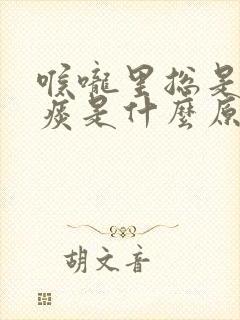 喉嚨里总是
痰是什麼原
胡文音